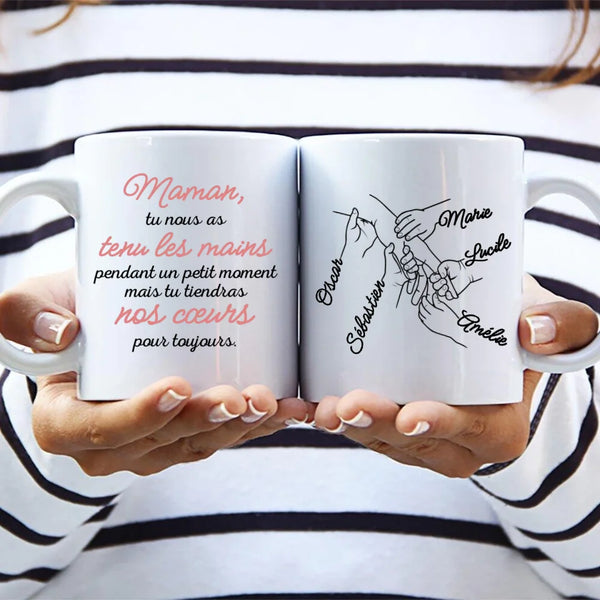 Maman,
tu nous as
tenu les mains
pendant un petit moment
mais tu tiendras
nos cœurs
pour toujours.
Marie
Lucile
Oscar
Sébastien
Amélie